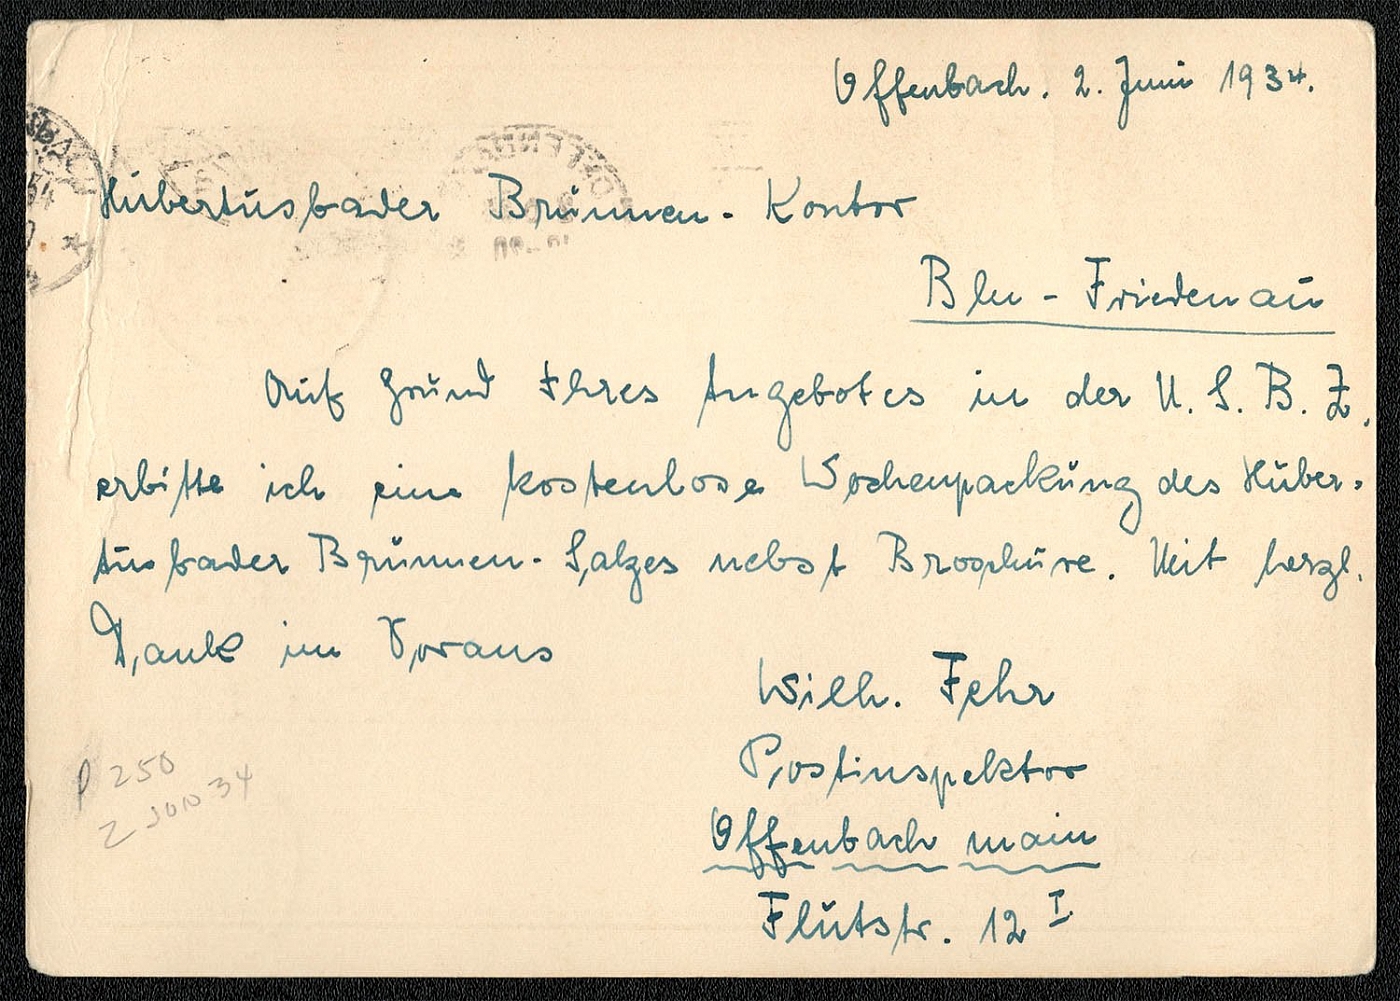 Offenbach. 2. Juni 1934.
Hubertusbader Brunnen-Kontor
Bln-Friedenau
Auf Grund Ihres Angebotes in der U.S.B.Z.
erbitte ich eine kostenlose Wochenpackung des Huber-
tusbader Brunnen-Salzes nebst Broschüre. Mit herzl.
Dank im Voraus
Wilh. Fehr
Postinspektor
Offenbach Main
Flutstr. 12 I
P 250
2 JUN 34